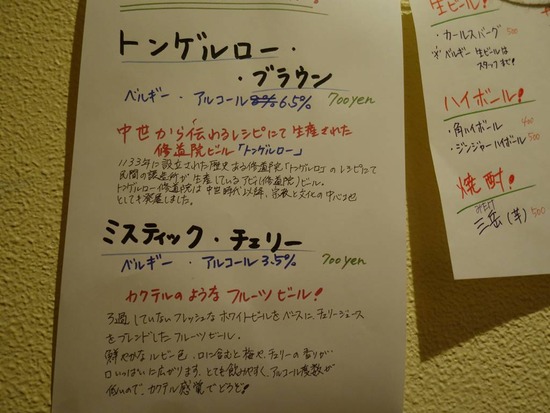 トンゲルロー・
・ブラウン
ベルギー ・ アルコール 8% 6.5% 700yen
中世から伝わるレシピにて生産された
修道院ビール「トンゲルロー」
1133年に設立された歴史ある修道院「トンゲルロ」のレシピにて
民間の醸造所が生産しているアビィ(修道院)ビール。
トンゲルロー修道院は中世時代以降、宗教と文化の中心地
としても発展しました。
ミスティック・チェリー
ベルギー ・ アルコール 3.5% 700yen
カクテルのような フルーツビール!
ろ過していないフレッシュなホワイトビールをベースに、チェリージュース
をブレンドしたフルーツビール。
鮮やかなルビー色、口に含むと梅や、チェリーの香りが
口いっぱいに広がります。とても飲みやすく、アルコール度数が
低いので、カクテル感覚でどうぞ!
生ビール!
・カールスバーグ 500
※ベルギー生ビールは
スタッフまで!
ハイボール!
・角ハイボール 400
・ジンジャーハイボール 500
焼酎!
三岳(芋) 500